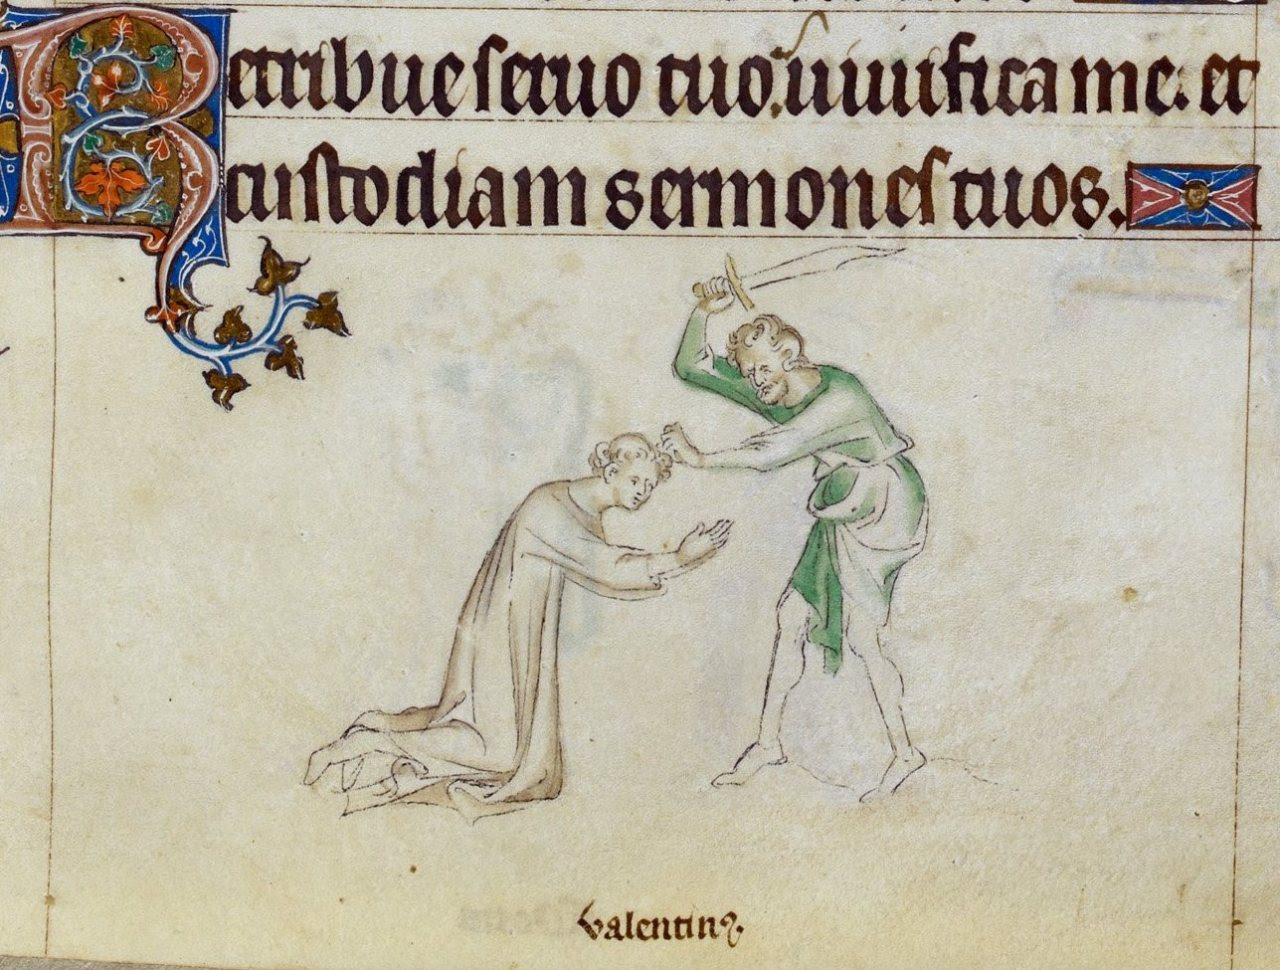 Retribue seruo tuo uiuifica me. et
custodiam sermones tuos.
Valentinꝰ